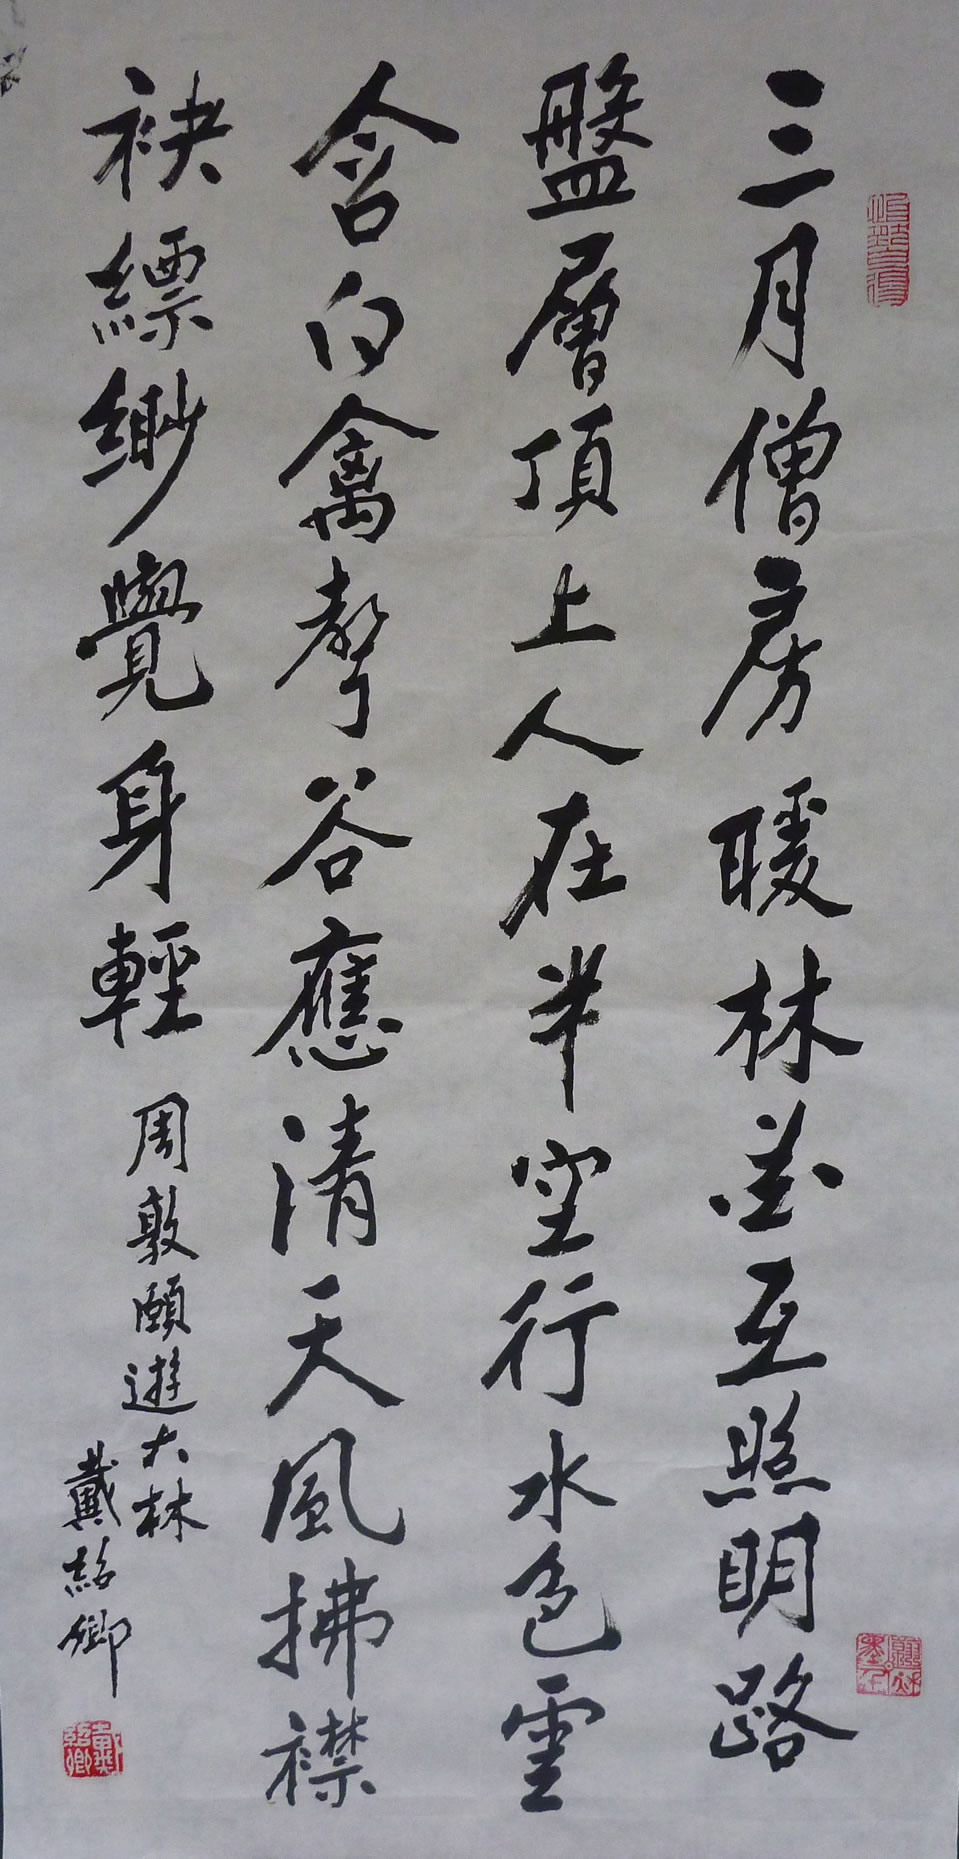 三月僧房暖林花互照明路
盤層頂上人在半空行水色雲
含白禽聲谷應清天風拂襟
袂縹緲覺身輕
周敦頤遊大林
戴紹卿
戴紹卿